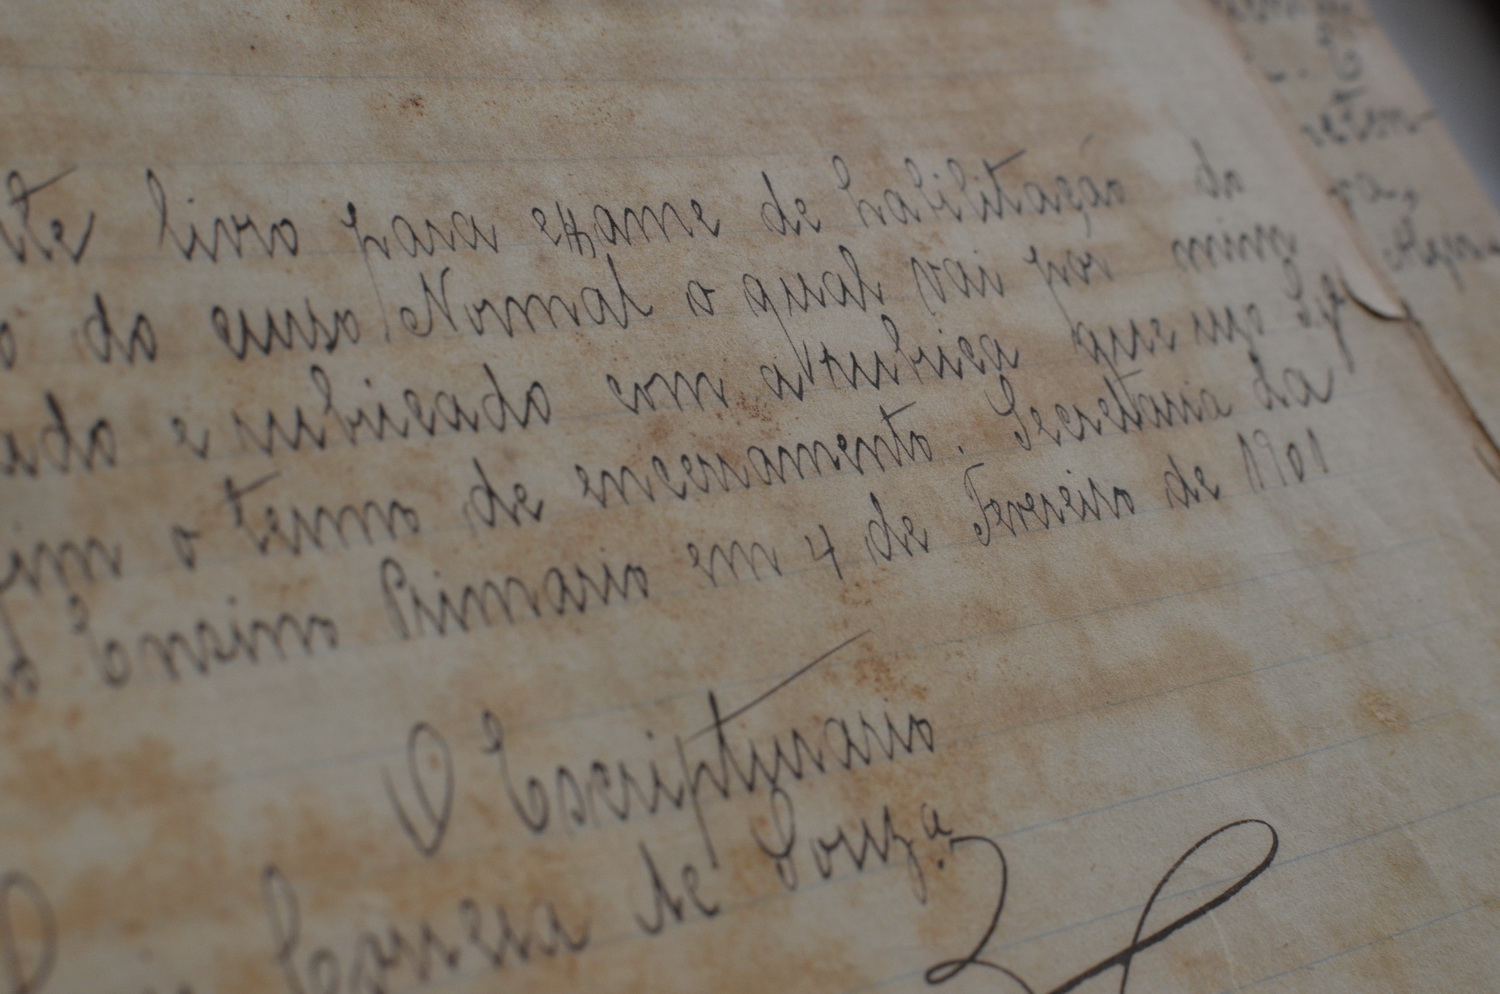 ste livro para exame de habilitação do
o do curso Normal o qual vai por mim
ado e rubricado com a rubrica que uso
im o termo de encerramento. Secretaria da
Ensino Primario em 4 de Fevereiro de 1901
O Escripturario
Correia de Souza